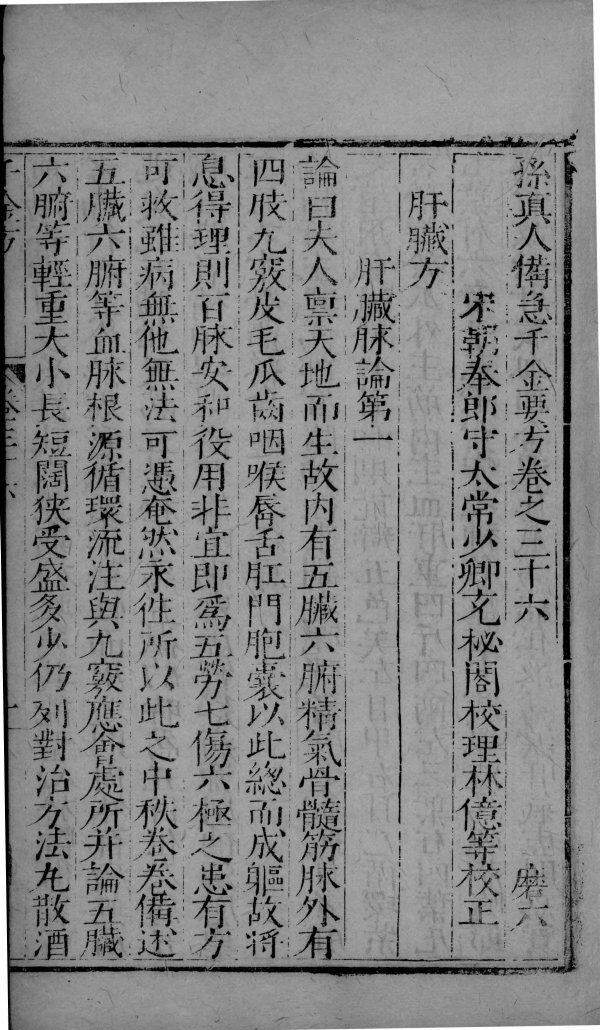 孫真人備急千金要方卷之三十六 磨六
宋朝奉郎守太常少卿充秘閣校理林億等校正
肝臟方
肝臟脉論第一
論曰夫人禀天地而生故内有五臟六腑精氣骨髓筋脉外有
四肢九竅皮毛爪齒咽喉唇舌肛門胞囊以此總而成軀故將
息得理則百脉安和役用非宜即爲五勞七傷六極之患有方
可救雖病無他無法可憑奄然永徃所以此之中秩卷卷備述
五臟六腑等血脉根源循環流注與九竅應會處所并論五臟
六腑等輕重大小長短闊狹受盛多少仍列對治方法丸散酒
千金方 卷三十六